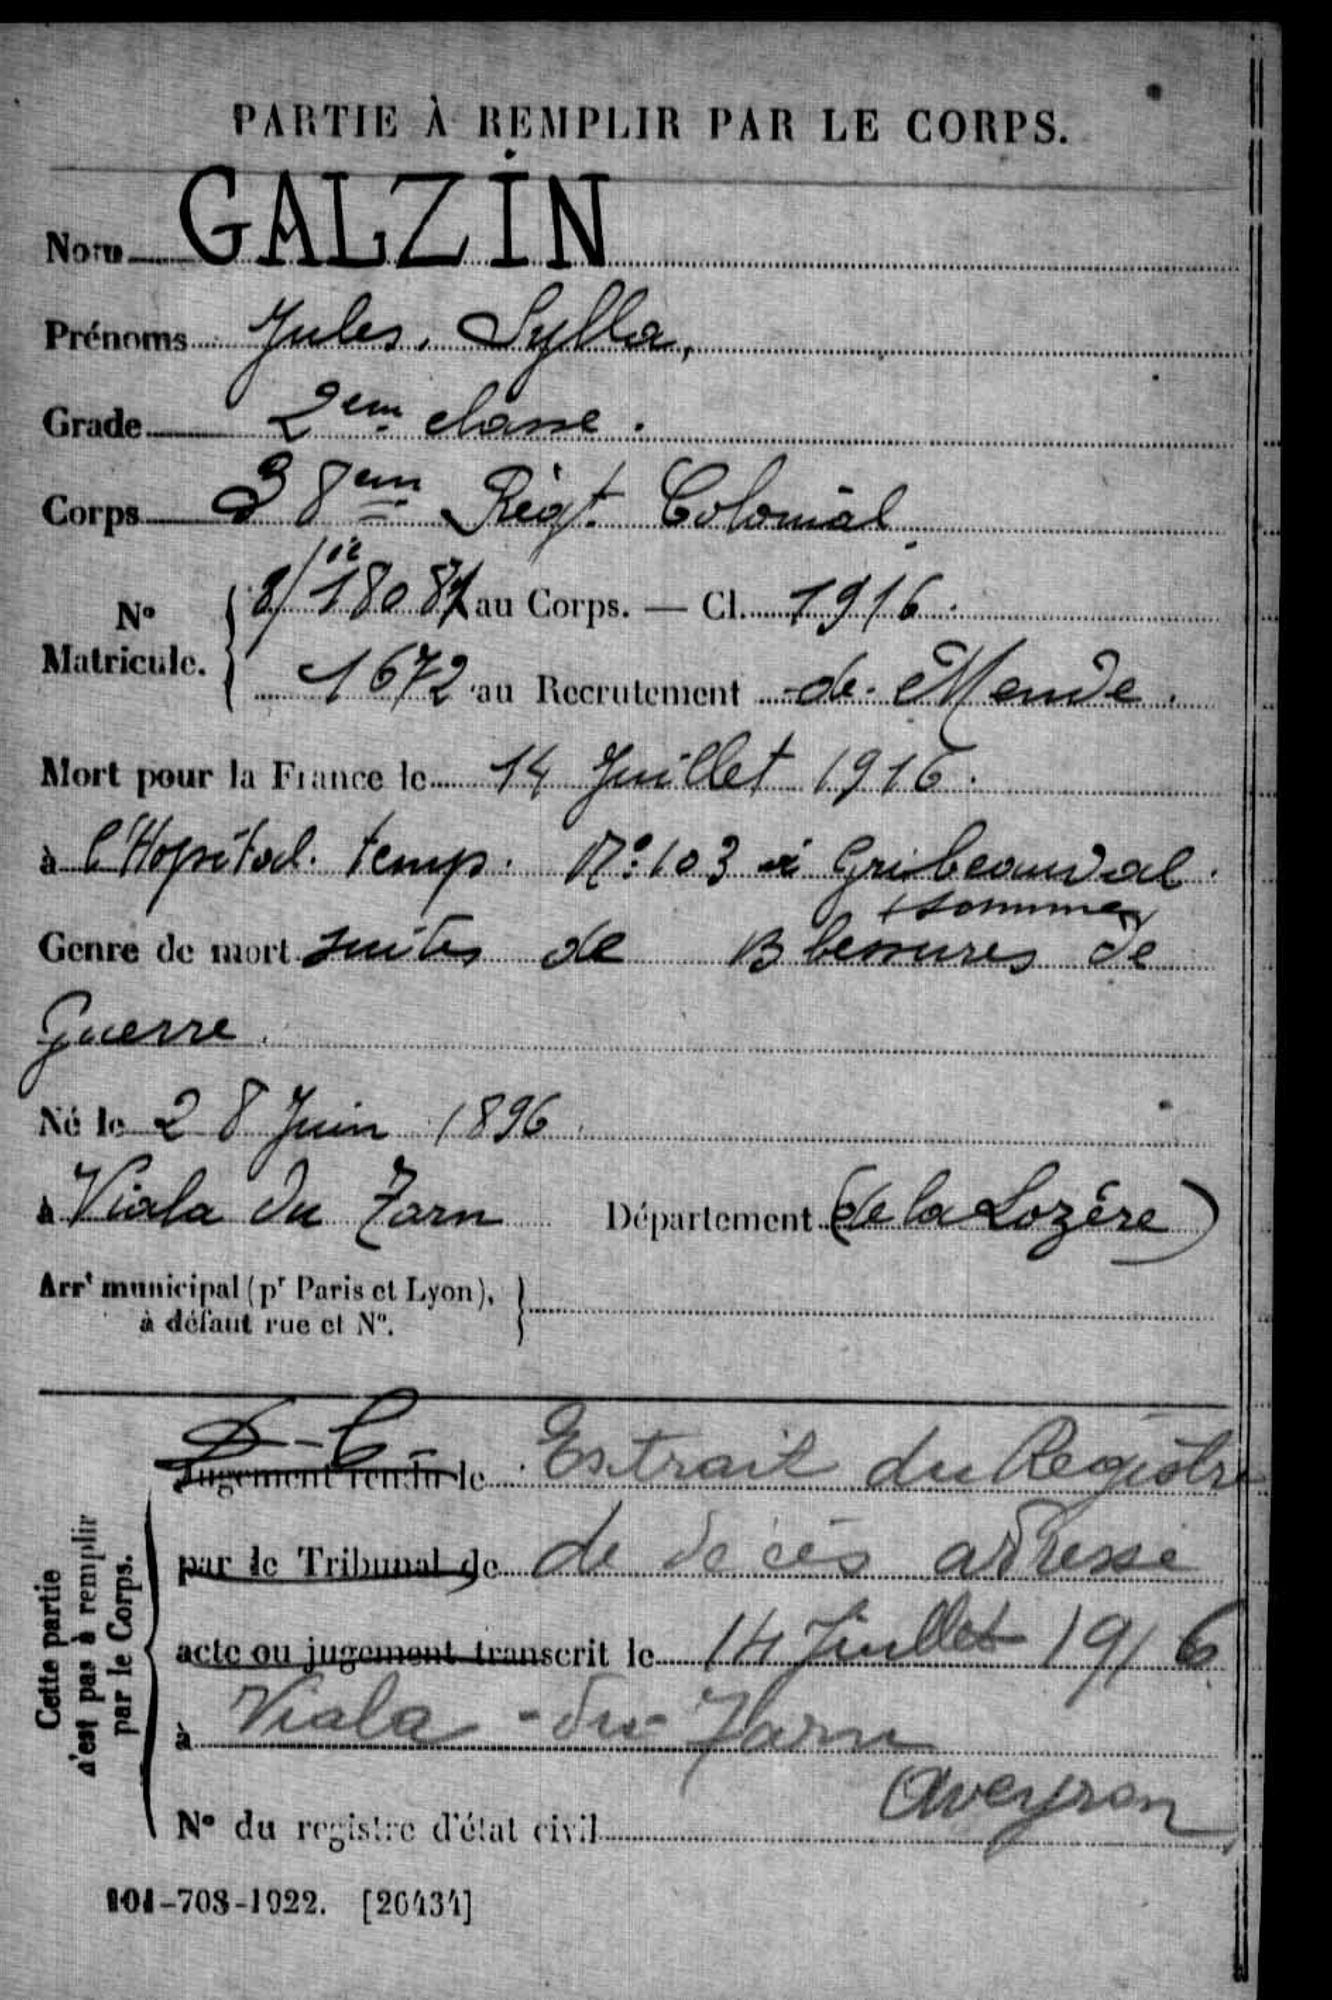 PARTIE À REMPLIR PAR LE CORPS.
Nom GALZIN
Prénoms Jules, Sylla,
Grade 2em classe.
Corps 38em Régt Colonial
N° Matricule. au Corps. — Cl. 1916.
1672 au Recrutement de Mende.
Mort pour la France le 14 Juillet 1916.
à l'Hopital temp. N° 103 à Gribeauval.
(Somme)
Genre de mort suites de Blessures de
Guerre.
Né le 28 Juin 1896.
à Viala du Tarn Département (de la Lozère)
Arrt municipal (pr Paris et Lyon),
à défaut rue et N°.
Cette partie
n'est pas à remplir
par le Corps.
Jugement rendu le Extrait du Registre
par le Tribunal de de décès adressé
acte ou jugement transcrit le 14 Juillet 1916
à Viala-du-Tarn
Aveyron
N° du registre d'état civil
101-708-1922. [26434]